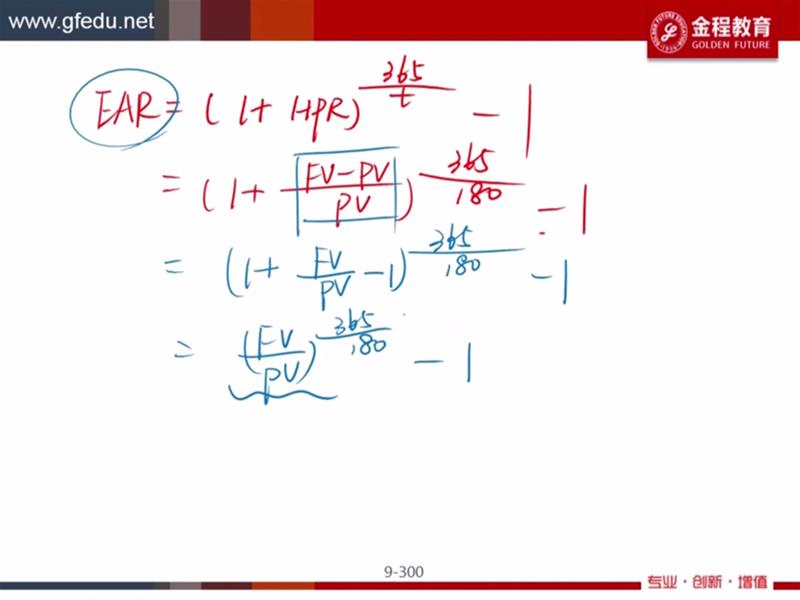 www.gfedu.net
金程教育
GOLDEN FUTURE
EAR = (1 + HPR)^(365/t) - 1
= (1 + (FV-PV)/PV)^(365/180) - 1
= (1 + FV/PV - 1)^(365/180) - 1
= (FV/PV)^(365/180) - 1
9-300
专业·创新·增值